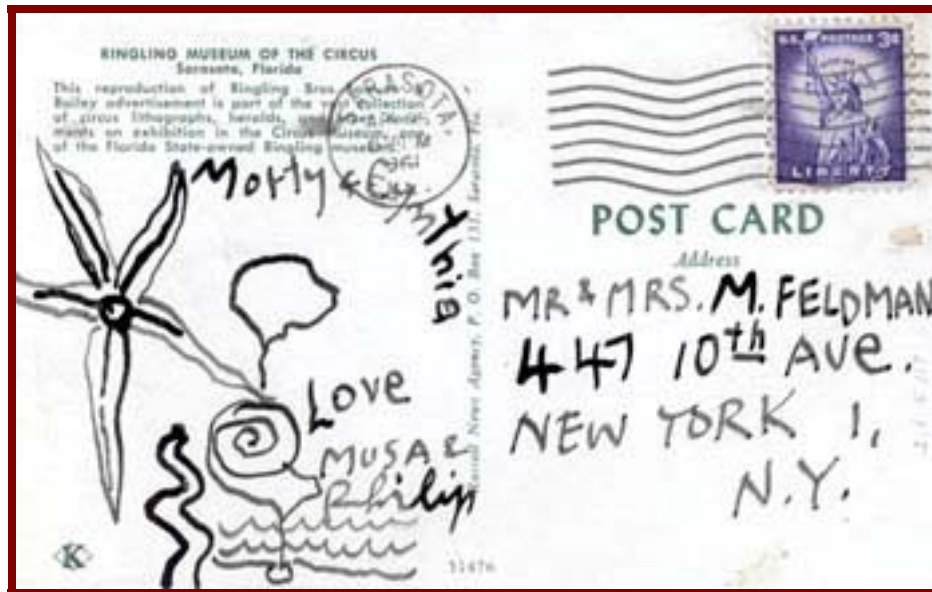 RINGLING MUSEUM OF THE CIRCUS
Sarasota, Florida
This reproduction of Ringling Bros.
Bailey advertisement is part of the collection
of circus lithographs, heralds, and
ments on exhibition in the Circus Museum, one
of the Florida State-owned Ringling museums.
Morty & Cynthia
Love
MUSA &
Philip
K
51476
News Agency, P. O. Box Sarasota, Fla.
SARASOTA,
U.S. POSTAGE 3¢
LIBERTY
POST CARD
Address
MR & MRS. M. FELDMAN
447 10th Ave.
NEW YORK 1,
N.Y.